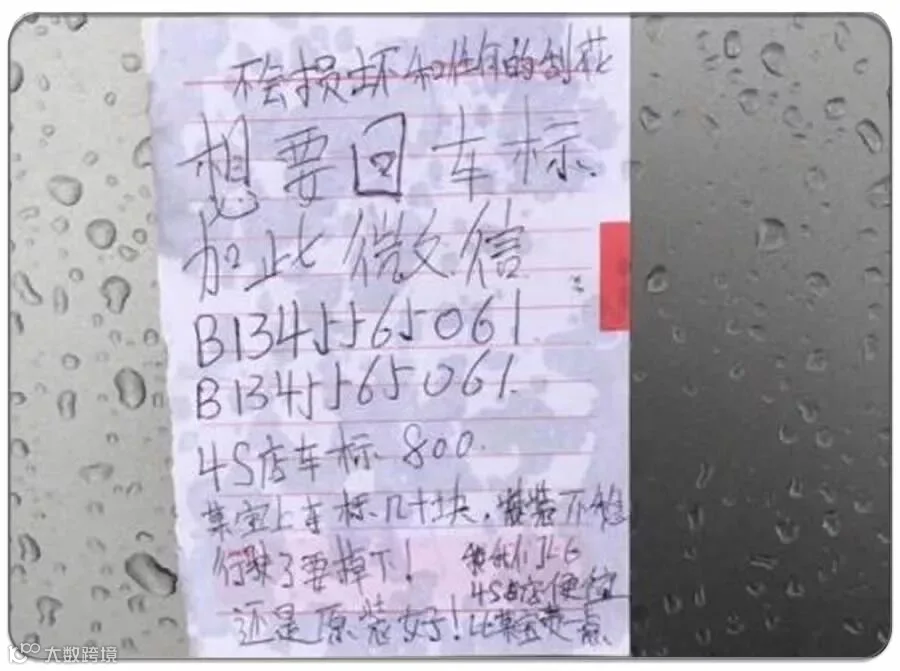 不会损坏和任何的刮花
想要回车标
加此微信
B1345565061
B1345565061.
4S店车标800.
某宝上车标几十块,安装不稳
行驶了要掉下!
4S店便宜
还是原装好!比某宝贵一点
大数跨境